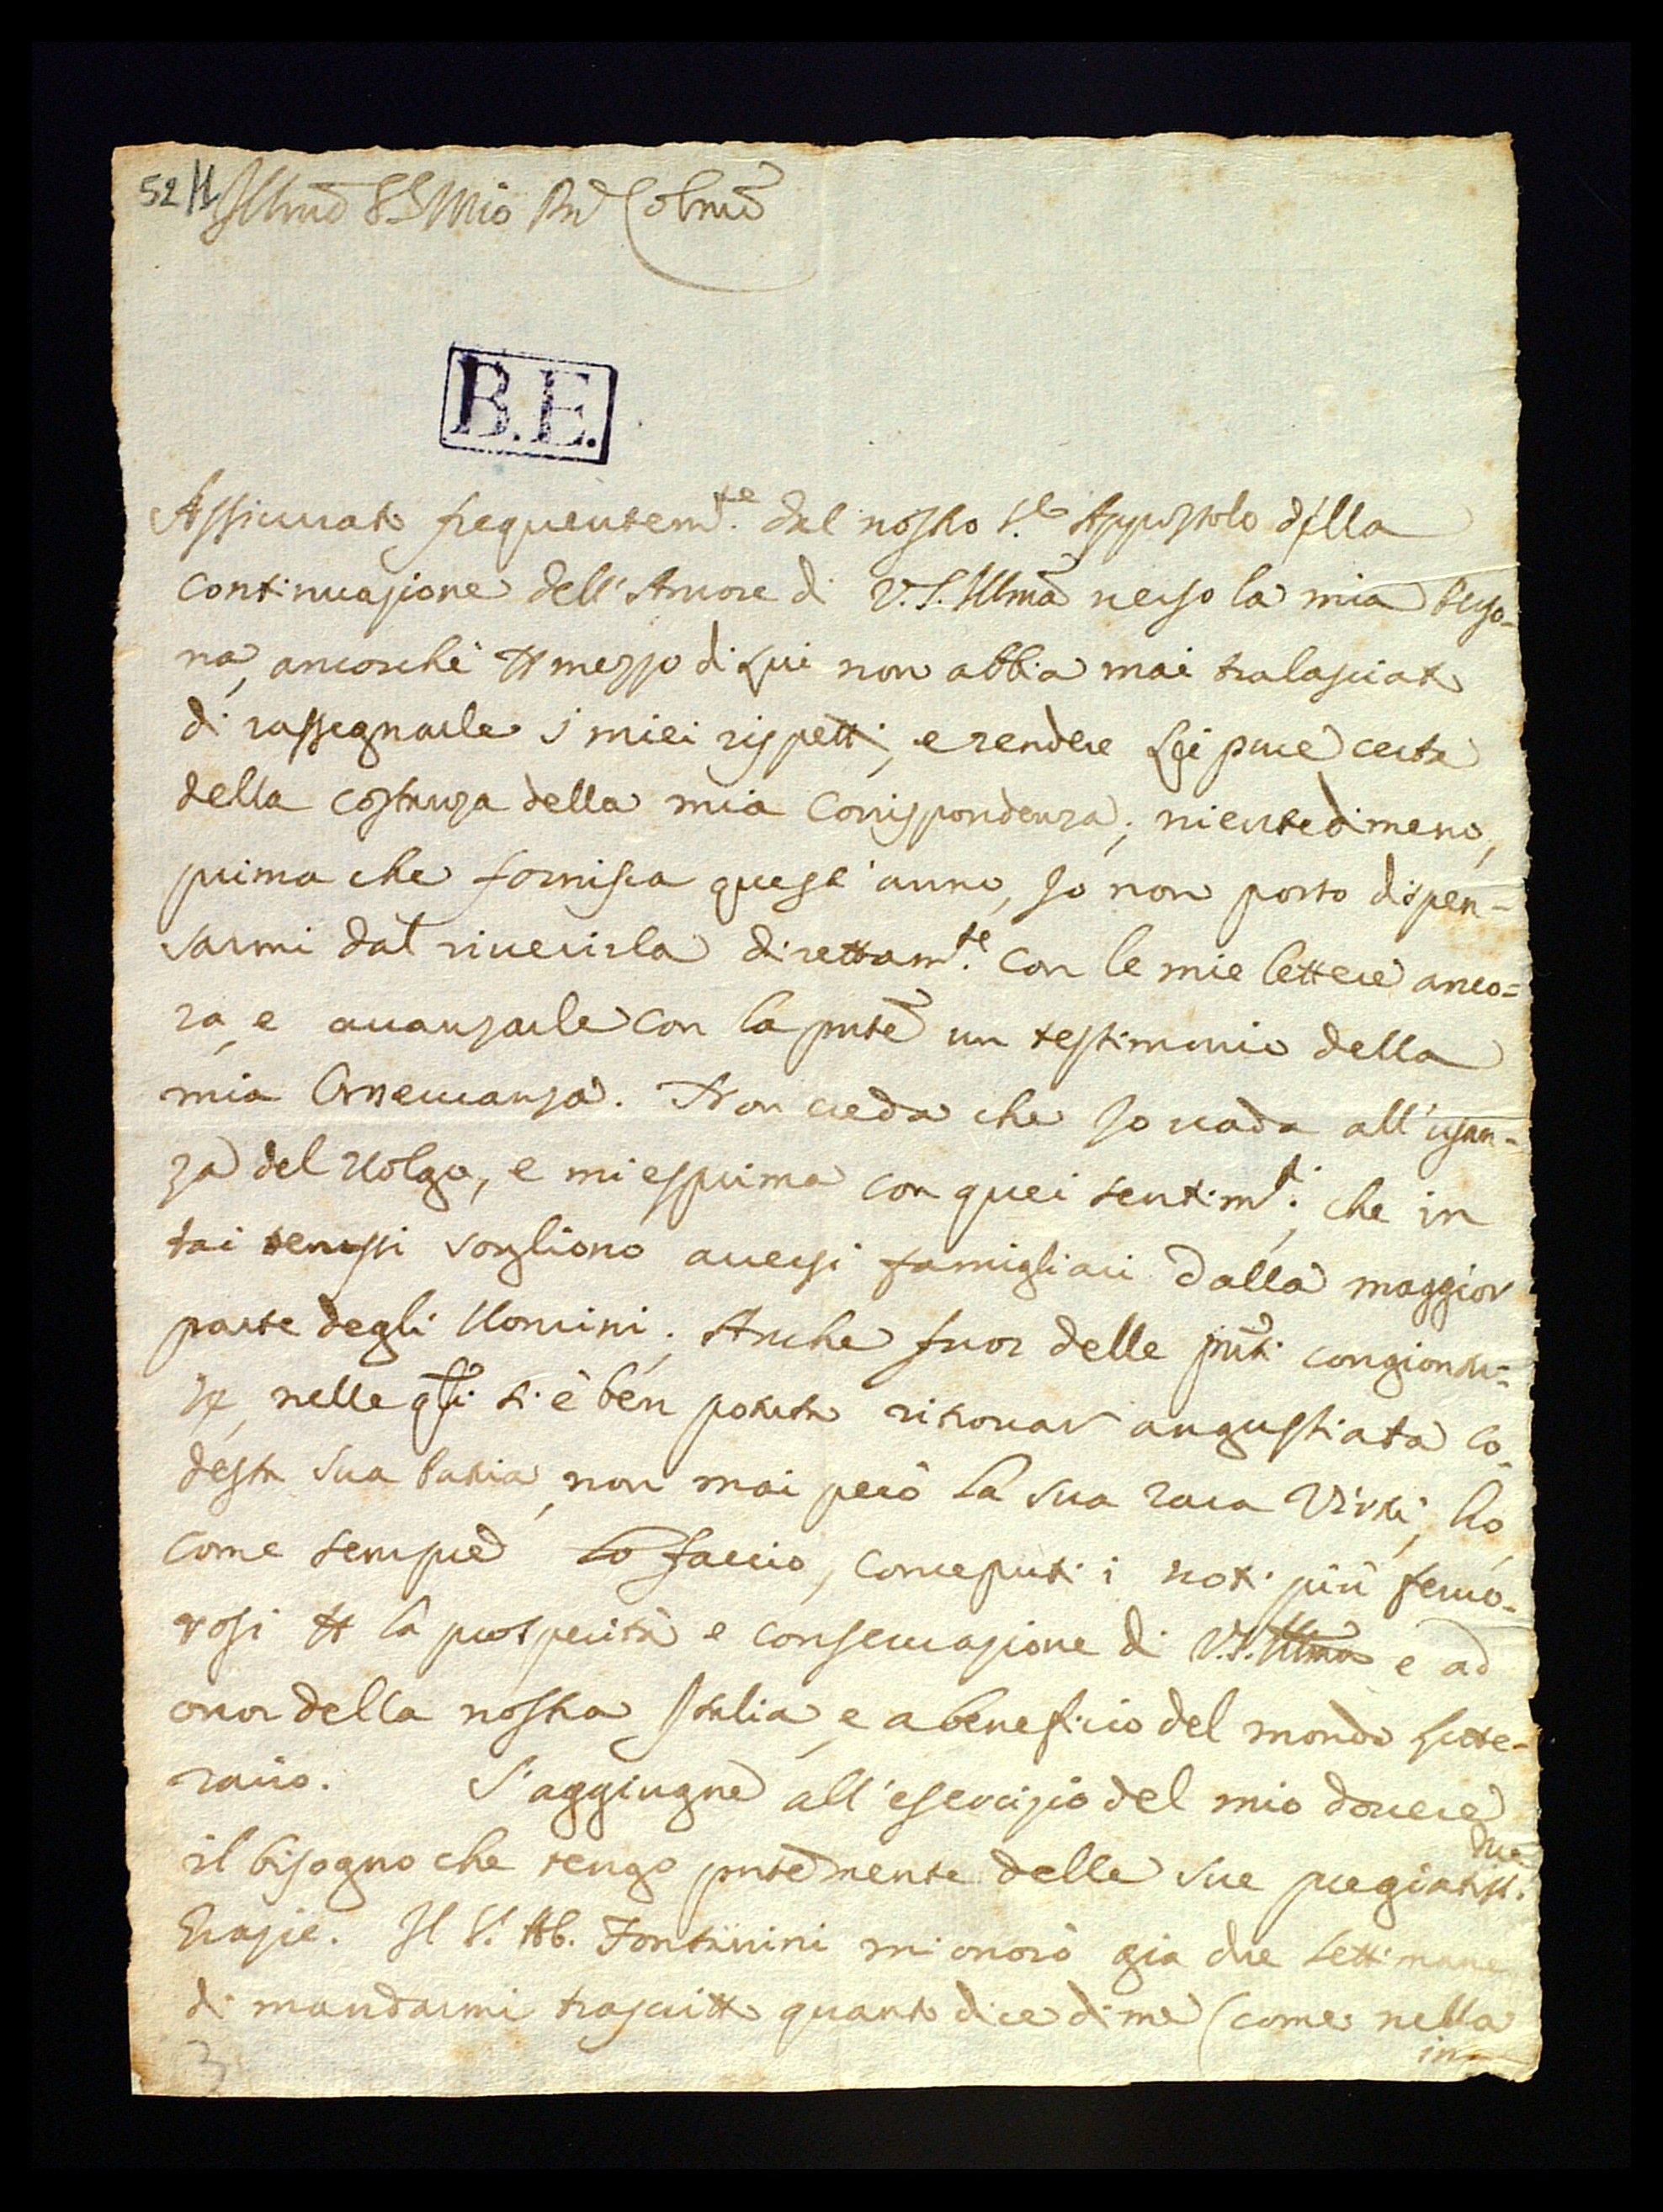 52
Illmō Sr. Mio Pnē Colmō
B.E.
Assicurato frequentem.te dal nostro S.r Appostolo della
continuazione dell'Amore di V.S. Illma verso la mia Perso-
na, ancorchè mezzo di Lui non abbia mai tralasciato
di rassegnarle i miei rispetti, e rendere Lei pure certa
della costanza della mia corrispondenza; nientedimeno,
prima che fornisca quest'anno, Io non posso dispen-
sarmi dal riverirla direttam.te con le mie lettere anco=
ra, e avanzarle con la pnte un testimonio della
mia Osservanza. Non creda che Io vada all'usan-
za del volgo, e mi esprima con quei sentim.ti, che in
tai tempi sogliono aversi famigliari dalla maggior
parte degli Uomini. Anche fuor delle pnti congiontu=
re, nelle qli si è ben potuta ritrovar angustiata co-
desta sua Patria, non mai però la sua rara Virtù, ho,
come sempre lo faccio, conceputi i voti più fervo-
rosi la prosperità e conservazione di V.S. Illma e ad
onor della nostra Italia, e a beneficio del mondo Lette-
rario. S'aggiugne all'esercizio del mio dovere
il bisogno che tengo pntemente delle sue pregiatiss.me
Grazie. Il S.r Ab. Fontanini mi onorò già due settimane
di mandarmi trascritto quanto dice di me (come nella
in
3